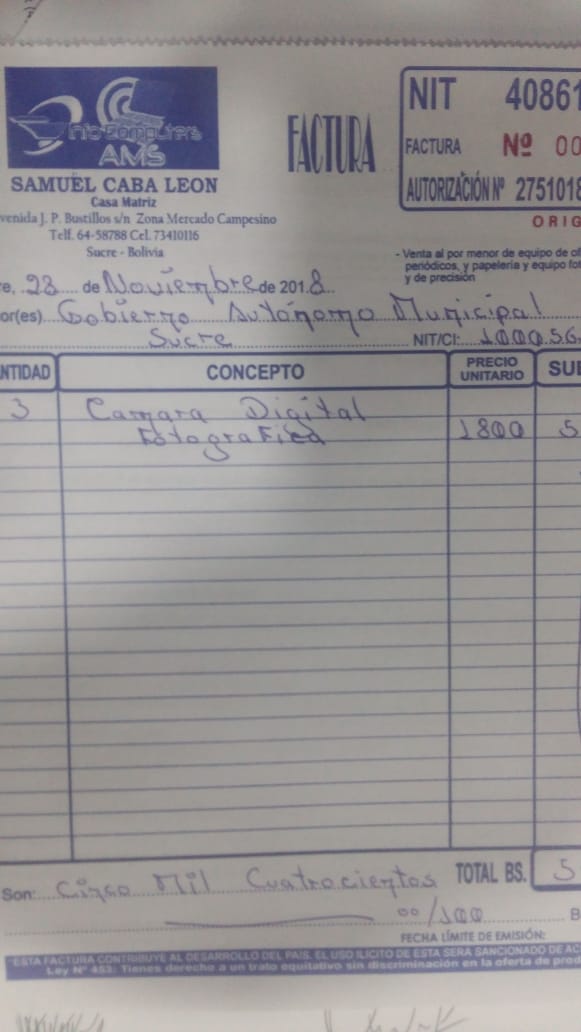 Info Computers
AMS
SAMUEL CABA LEON
Casa Matriz
venida J. P. Bustillos s/n Zona Mercado Campesino
Telf. 64-58788 Cel. 73410116
Sucre - Bolivia
FACTURA
NIT 40861
FACTURA Nº 00
AUTORIZACIÓN Nº 2751018
ORIG
- Venta al por menor de equipo de of
periódicos, y papelería y equipo fot
y de precisión
re, 28 de Noviembre de 2018
or(es) Gobierno Autónomo Municipal
Sucre NIT/CI: 1000.56
NTIDAD CONCEPTO PRECIO UNITARIO SUB
3 Camara Digital
Fotografica 1800 5
Son: Cinco Mil Cuatrocientos TOTAL BS. 5
00/100 B
FECHA LÍMITE DE EMISIÓN:
"ESTA FACTURA CONTRIBUYE AL DESARROLLO DEL PAÍS. EL USO ILÍCITO DE ESTA SERA SANCIONADO DE AC
Ley Nº 453: Tienes derecho a un trato equitativo sin discriminación en la oferta de prod